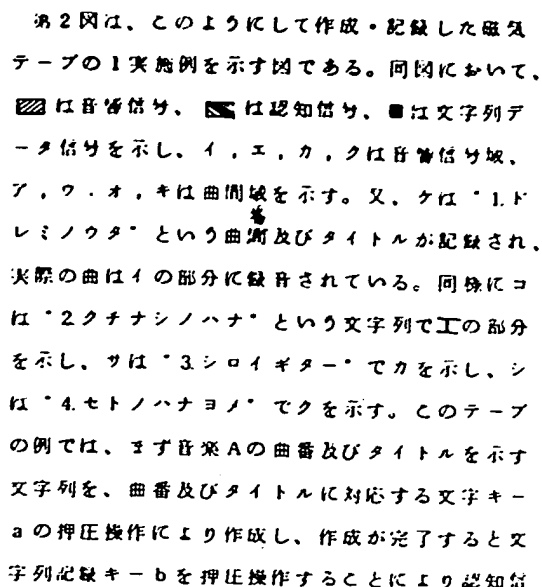 第2図は、このようにして作成・記録した磁気
テープの1実施例を示す図である。同図において、
は音響信号、は認知信号、■は文字列デ
ータ信号を示し、イ，エ，カ，クは音響信号域、
ア，ウ．オ，キは曲間域を示す。又、ケは“1.ド
レミノウタ”という曲番及びタイトルが記録され、
実際の曲はイの部分に録音されている。同様にコ
は“2.クチナシノハナ”という文字列でエの部分
を示し、サは“3.シロイギター”でカを示し、シ
は“4.セトノハナヨメ”でクを示す。このテープ
の例では、まず音楽Aの曲番及びタイトルを示す
文字列を、曲番及びタイトルに対応する文字キー
aの押圧操作により作成し、作成が完了すると文
字列記録キーbを押圧操作することにより認知信